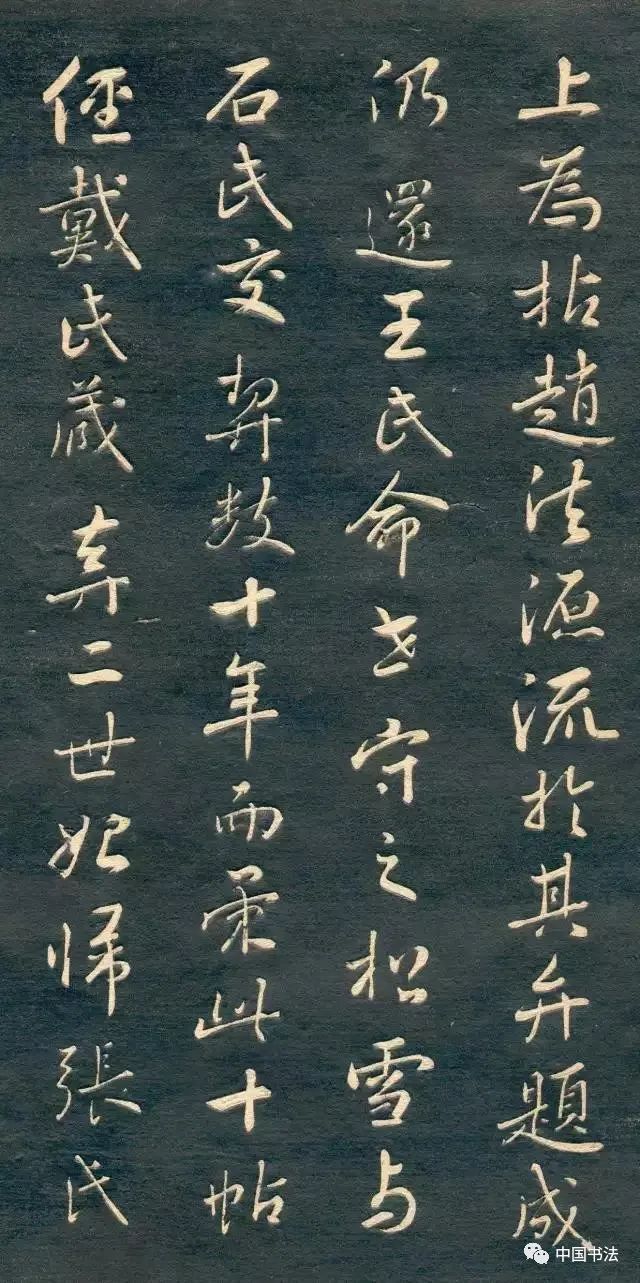 上為拈趙法源流於其弁題成
仍還王氏命世守之松雪与
石氏交契数十年而采此十帖
經戴氏藏弆二世始歸張氏
中国书法